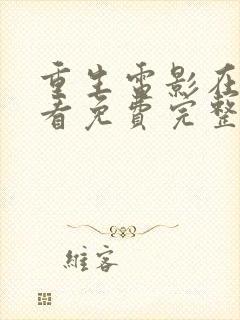 重生雷影在
看免费完整
維客